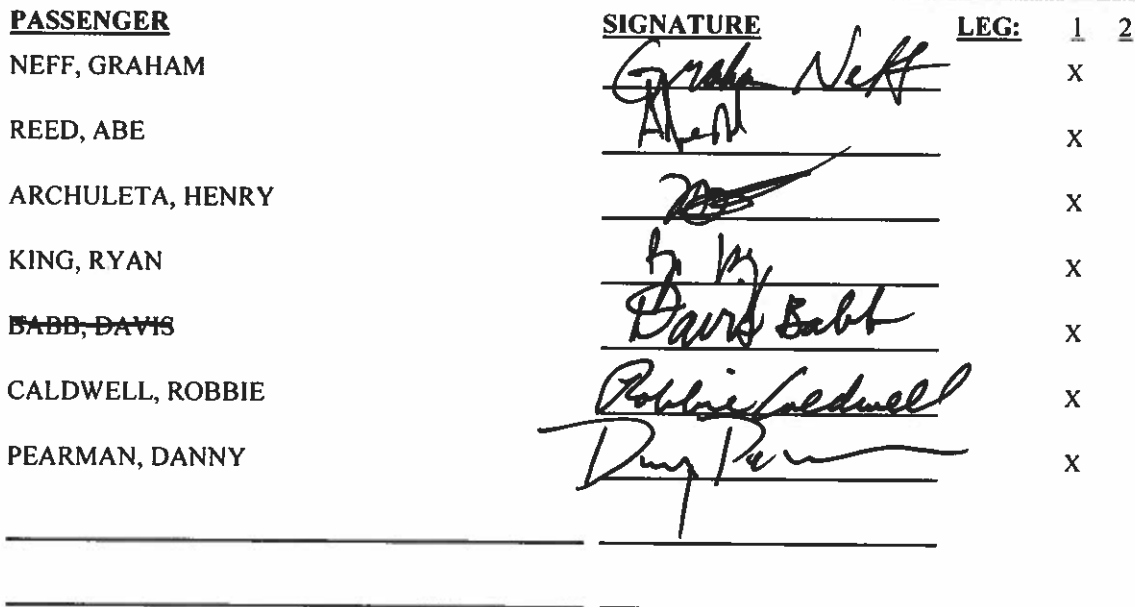 PASSENGER SIGNATURE LEG: 1 2
NEFF, GRAHAM Graham Neff X
REED, ABE X
ARCHULETA, HENRY X
KING, RYAN X
BABB, DAVIS Davis Babb X
CALDWELL, ROBBIE Robbie Caldwell X
PEARMAN, DANNY X